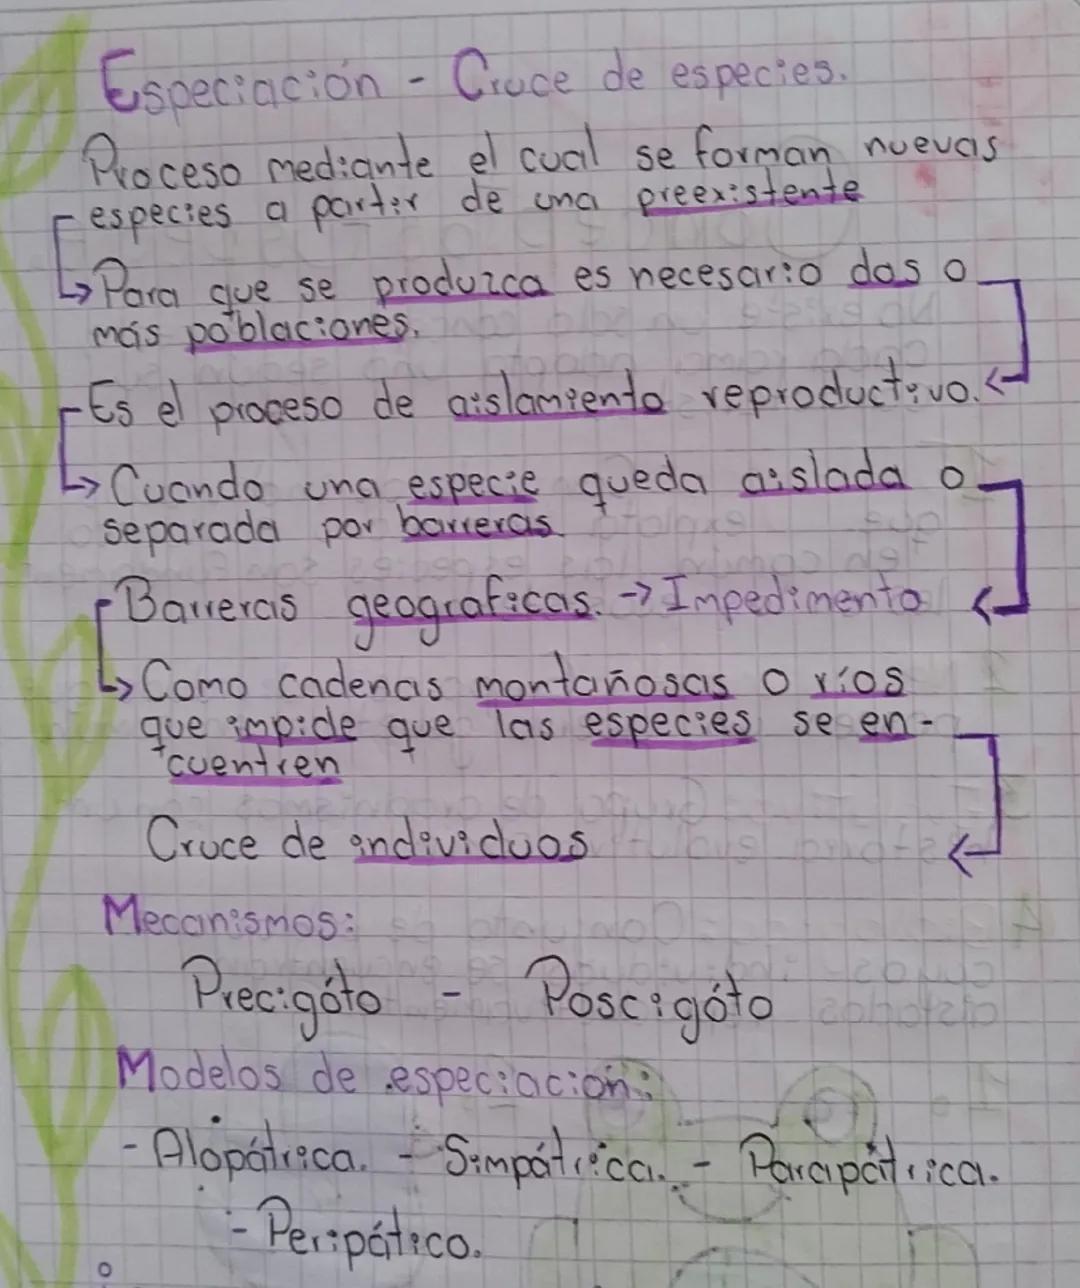 Especiación - Cruce de especies.
Proceso mediante el cual se forman nuevas
especies a partir de una preexistente
Para que se produzca es necesario dos o
más poblaciones.
Es el proceso de aislamiento reproductivo.
Cuando una especie queda aislada o
separada por barreras
Barreras geograficas. → Impedimento
Como cadenas montañosas o ríos
que impide que las especies se en-
cuentren
Cruce de individuos
Mecanismos:
Precigóto - Poscigóto
Modelos de especiacion:
- Alopátrica. - Simpátrica. - Parapátrica.
- Peripático.